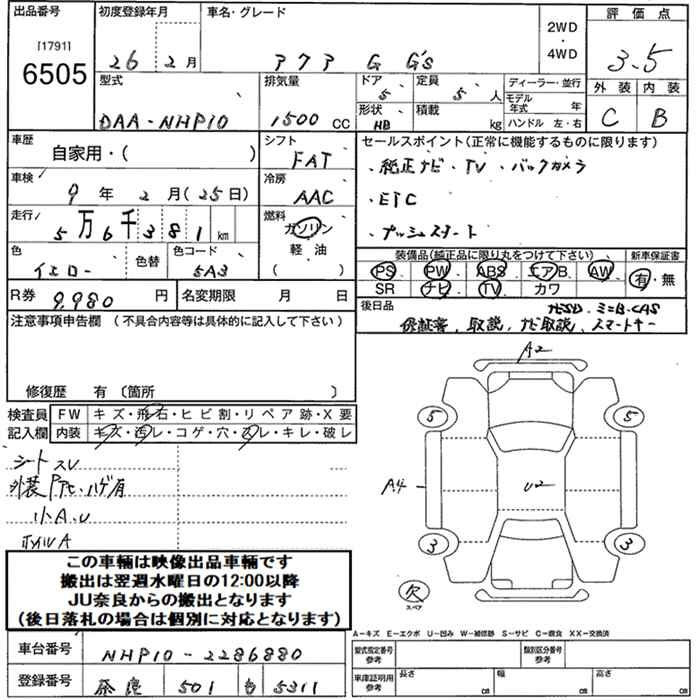 出品番号 初度登録年月 車名・グレード 評価点
[1791] 26年 2月 アクア G G's 2WD・4WD 3.5
6505
型式 排気量 ドア 定員 ディーラー・並行 外装 内装
DAA-NHP10 1500 CC 5 5人 モデル年式 年 C B
形状 HB 積載 kg ハンドル 左・右
車歴 自家用・( ) シフト FAT セールスポイント(正常に機能するものに限ります)
・純正ナビ・TV・バックカメラ
車検 9年 2月(25日) 冷房 AAC ・ETC
走行 5万6千381km 燃料 ガソリン ・プッシュスタート
軽・油
( )
色 イエロー 色替 色コード 5A3 装備品(純正品に限り丸をつけて下さい) 新車保証書
PS PW ABS エアB AW 有・無
SR ナビ TV カワ
R券 9,980円 名変期限 月 日 後日品 ナビSD・ミニB-CAS
保証書、取説、ナビ取説、スマートキー
注意事項申告欄(不具合内容等は具体的に記入して下さい)
修復歴 有〔箇所 〕
検査員 FW キズ・飛石・ヒビ割・リペア跡・X要
記入欄 内装 キズ・汚レ・コゲ・穴・スレ・キレ・破レ
シートスレ
外装 ハゲ有
小A、U
ホイルA
A2
5 5
A4 U2
3 3
欠
スペア
この車輌は映像出品車輌です
搬出は翌週水曜日の12:00以降
JU奈良からの搬出となります
(後日落札の場合は個別に対応となります)
A-キズ E-エクボ U-凹み W-補修跡 S-サビ C-腐食 XX-交換済
車台番号 NHP10-2286880 型式指定番号 参考 類別区分番号 参考
登録番号 奈良 501 5311 車庫証明用 参考 長さ cm 幅 cm 高さ cm